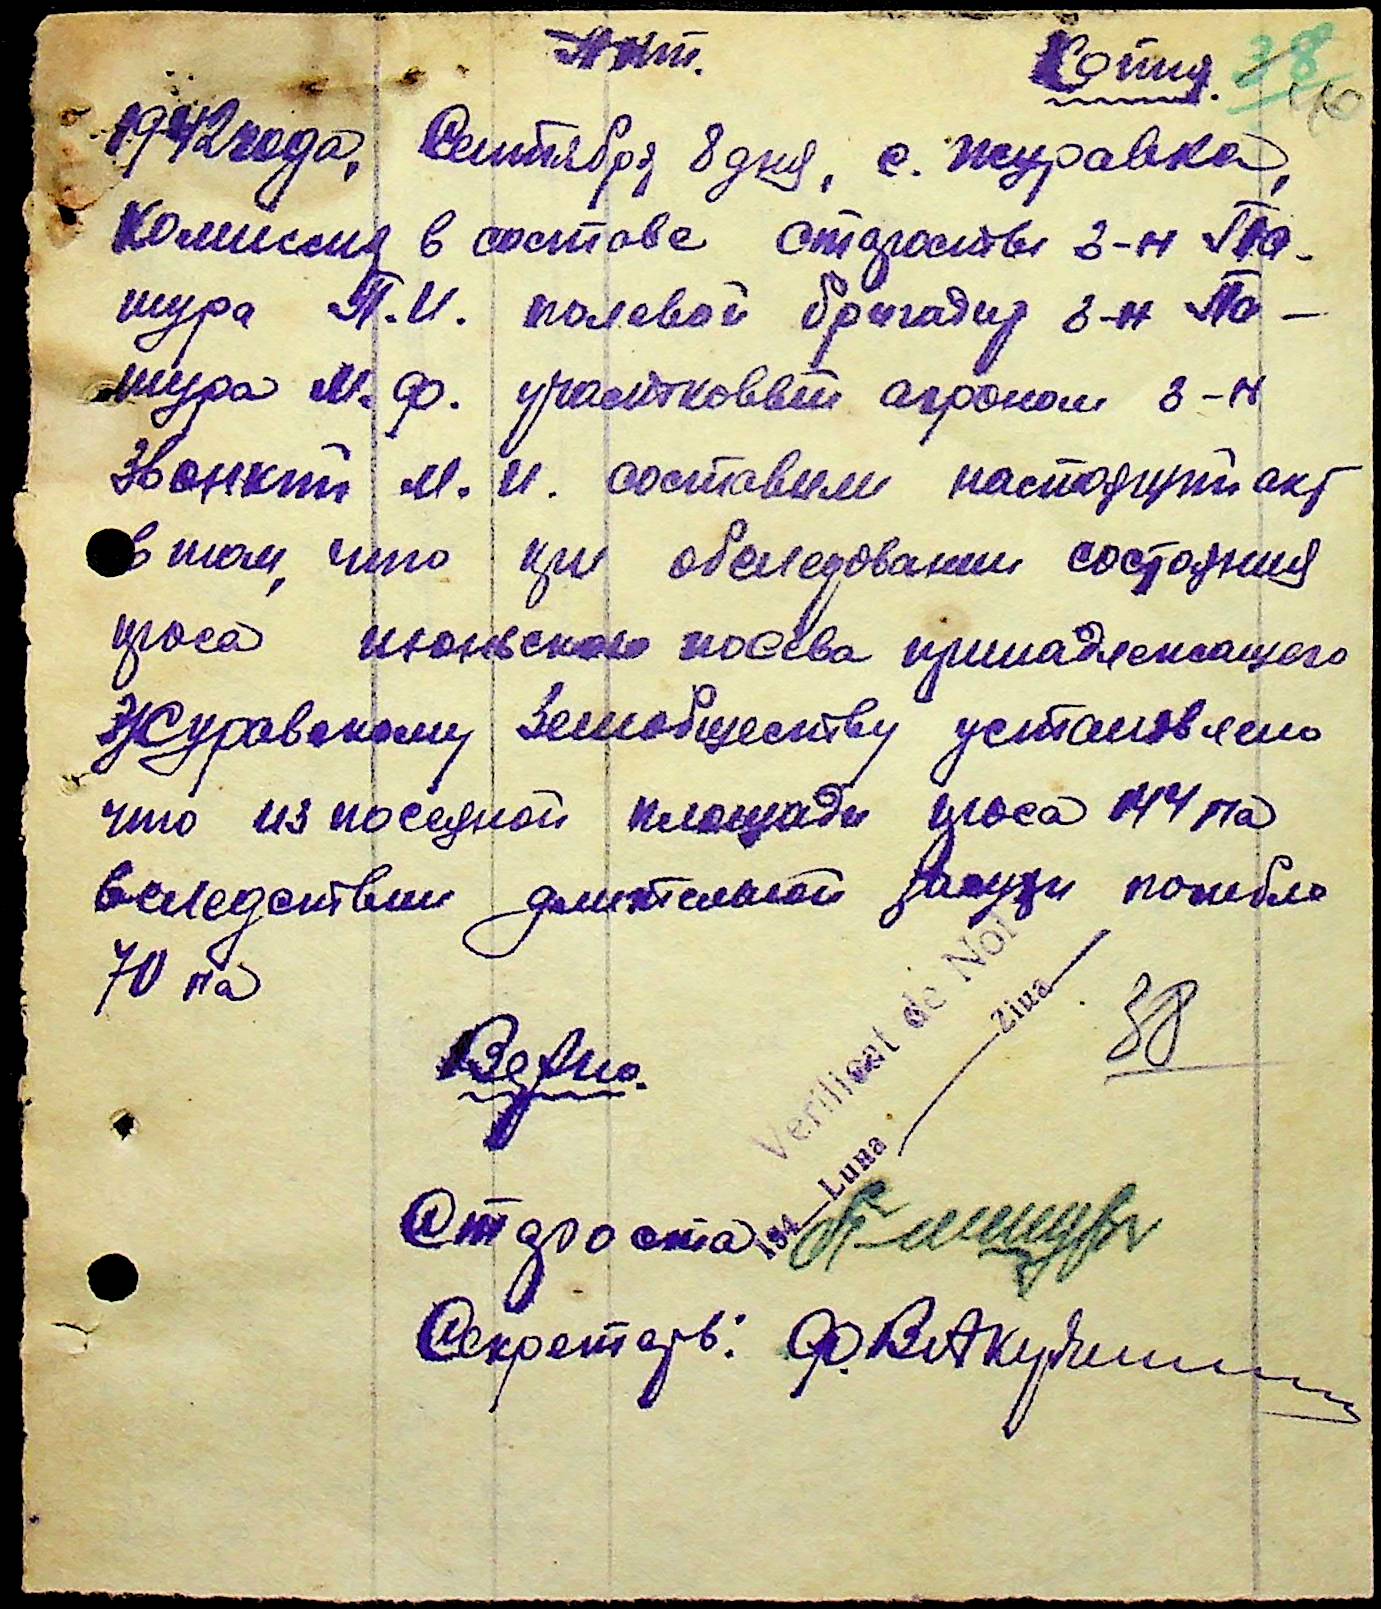 Акт. Копия. 38
1942 года, Сентября 8 дня, с. Журавка,
Комиссия в составе Старосты г-н По-
жура П. И. полевой бригадир г-н По-
жура М. Ф. участковый агроном г-н
Звонкий М. И. составили настоящий акт
в том, что при обследовании состояния
проса июньского посева принадлежащего
Журавскому Земобществу установлено
что из посеяной площади проса 144 га
вследствии длительной засухи погибло
70 га
Верно.
Verificat de Noi
194 Luna Ziua
38
Староста
Секретарь: Ф. Вакулишин